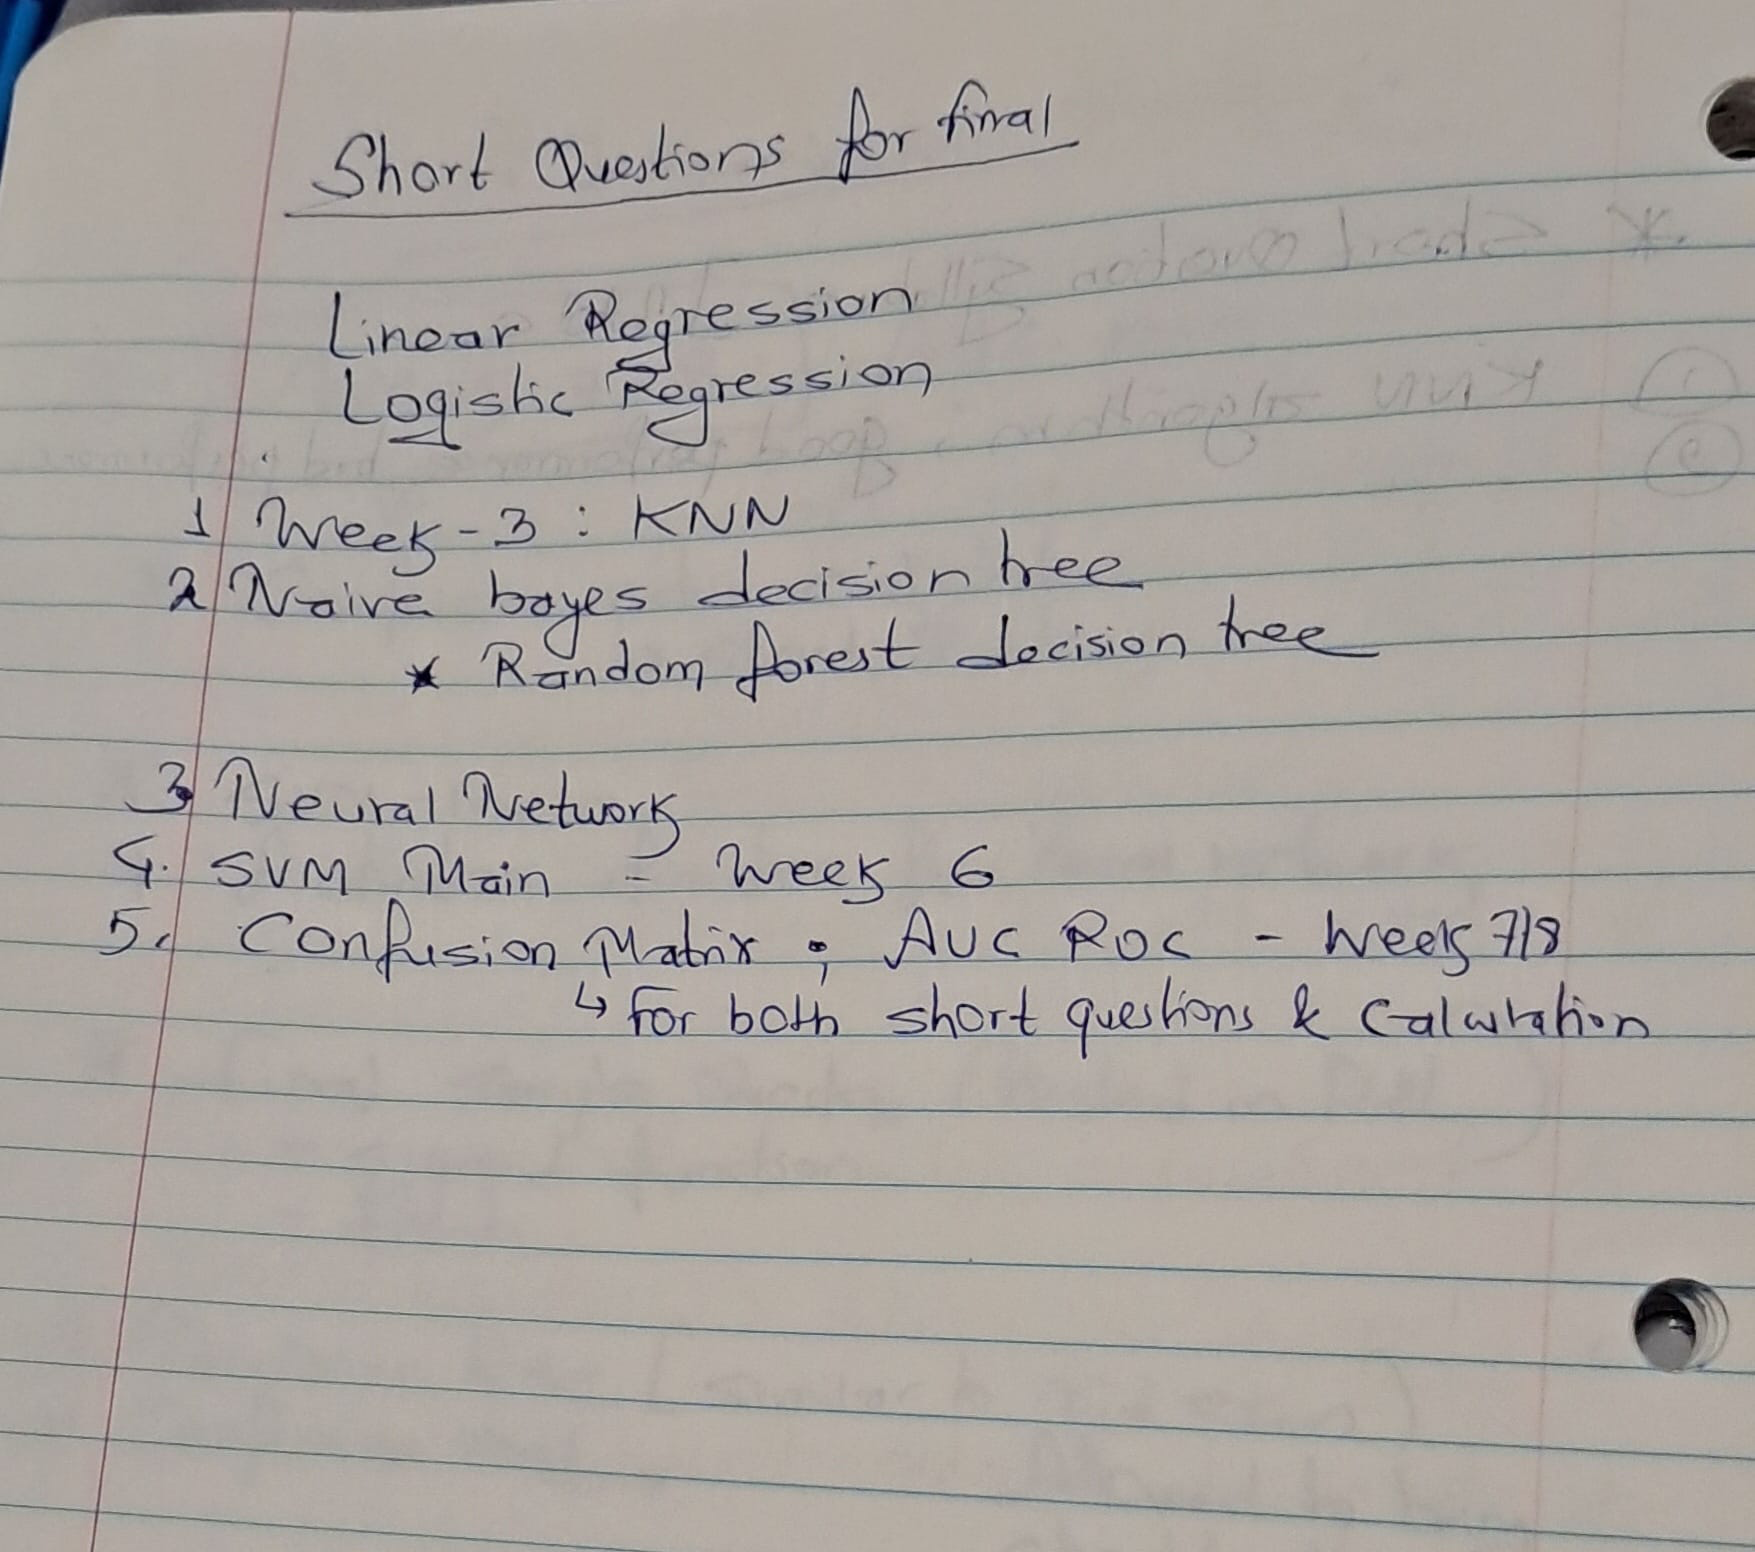 Short Questions for final
Linear Regression
Logistic Regression
1 Week-3 : KNN
2 Naive bayes decision tree
* Random forest decision tree
3 Neural Network
4. SVM Main - Week 6
5. Confusion Matrix ; AUC ROC - Week 7/8
↳ For both short questions & Calculation